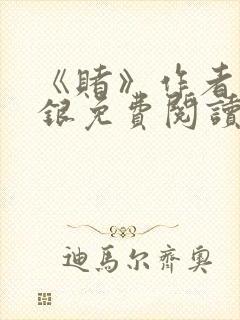 《賭》作者
銀免費閱讀
迪馬尔齊奧